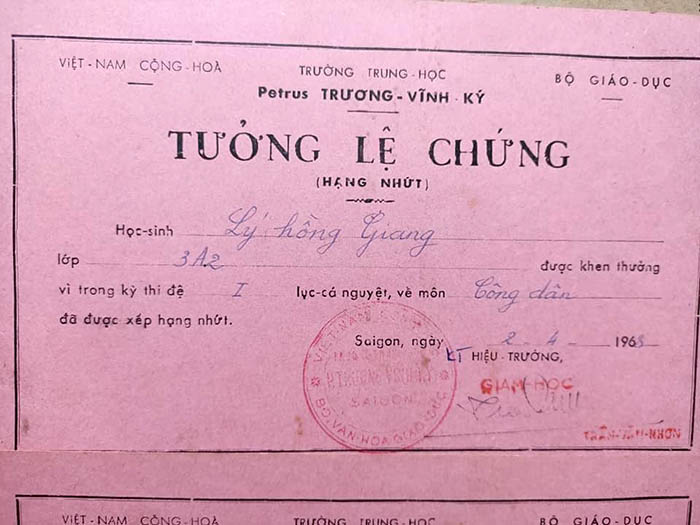 VIỆT-NAM CỘNG-HOÀ
TRƯỜNG TRUNG-HỌC
Petrus TRƯƠNG-VĨNH-KÝ
BỘ GIÁO-DỤC
TƯỞNG LỆ CHỨNG
(HẠNG NHỨT)
Học-sinh Lý hồng Giang
lớp 3A2 được khen thưởng
vì trong kỳ thi đệ I lục-cá nguyệt, về môn Công dân
đã được xếp hạng nhứt.
Saigon, ngày 2-4-1968
KT HIỆU-TRƯỞNG,
GIAM-HỌC
TRẦN-VĂN-NHƠN
VIỆT-NAM
SAIGON
BỘ-VĂN-HÓA GIÁO-DỤC
VIỆT-NAM CỘNG-HOÀ
TRƯỜNG TRUNG-HỌC
BỘ GIÁO-DỤC